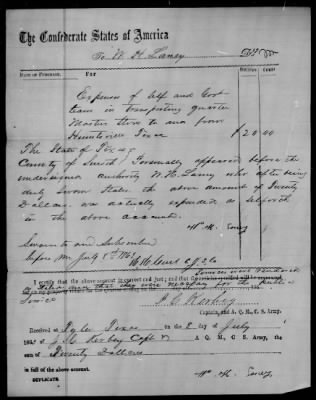 The Confederate States of America
To W. H. Laney Dr.
DATE OF PURCHASE. For DOLLARS CENTS
Expenses of self and Govt
team in transporting quarter
Master Stores to and from
Huntsville Texas $20 00
The State of Texas
County of Smith Personally appeared before the
undersigned authority W. H. Laney who after being
duly Sworn States the above amount of Twenty
Dollars was actually expended as set forth
in the above account.
W. H. Laney
Sworn to and Subscribed
before me July 8th 186
I certify that the above account is correct and just; that the services were rendered
as stated and that they were necessary for the public
Service
Captain, and A. Q. M., C. S. Army.
Received at Tyler Texas the 8 of July
186 of Capt & A. Q. M., C. S. Army, the
sum of Twenty Dollars
in full of the above account.
DUPLICATE.
W. H. Laney